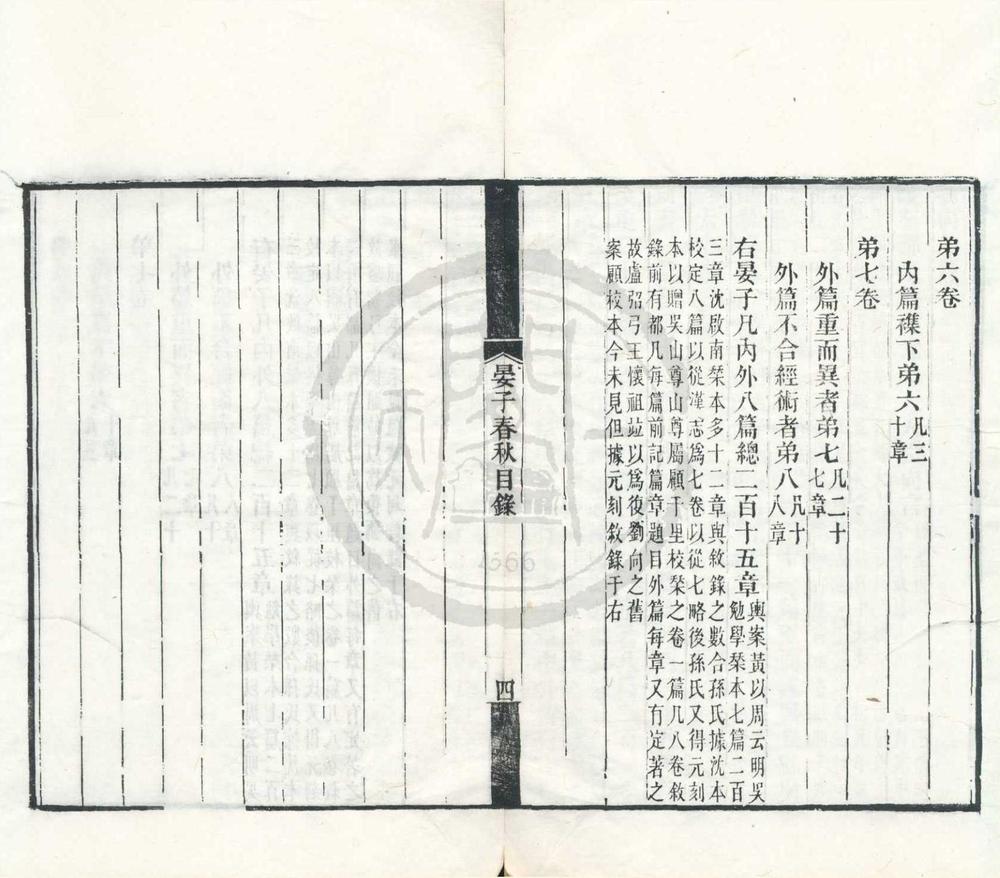 弟六卷
內篇襍下弟六凡三
十章
弟七卷
外篇重而異者弟七凡二十
七章
外篇不合經術者弟八凡十
八章
右晏子凡內外八篇總二百十五章輿案黃以周云明吳
勉學琹本七篇二百
三章沈啟南琹本多十二章與敘錄之數合孫氏據沈本
校定八篇以從漢志爲七卷以從七略後孫氏又得元刻
本以贈吳山尊山尊屬顧千里校琹之卷一篇凡八卷敘
錄前有都凡每篇前記篇章題目外篇每章又有定著之
故盧弨弓王懷祖竝以爲復劉向之舊
案顧校本今未見但據元刻敘錄于右
晏子春秋目錄
四
4566